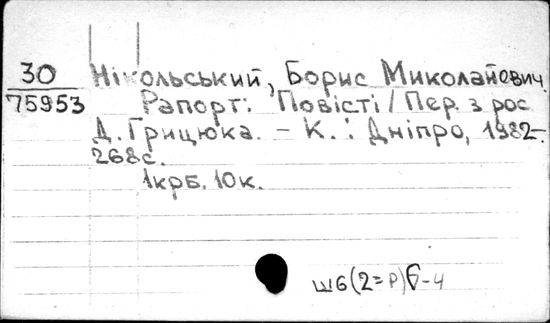 30
75953
Нікольський, Борис Миколайович.
Рапорт: Повісті / Пер. з рос
Д. Грицюка. – К.: Дніпро, 1982.–
268с.
1крб. 10к.
Ш6(2=Р)6-4